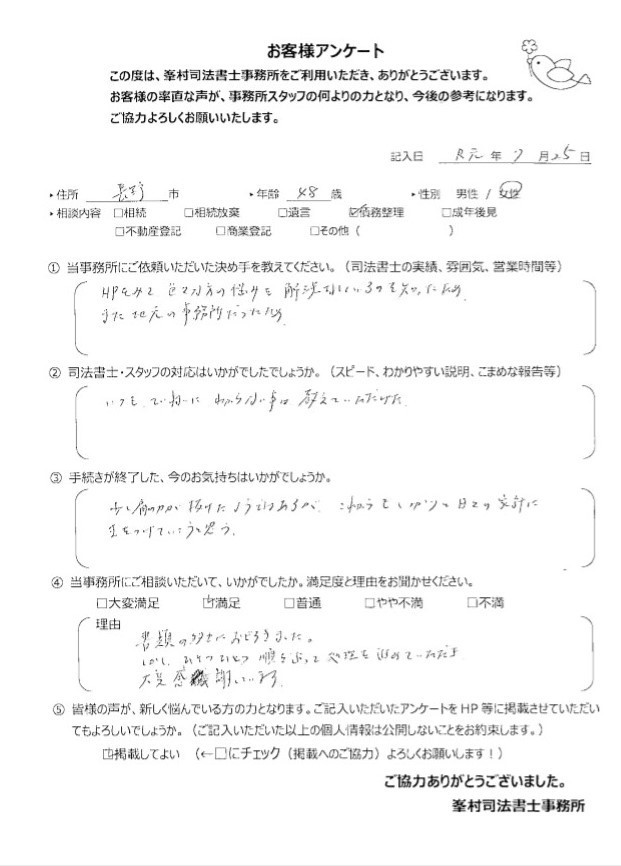 お客様アンケート
この度は、峯村司法書士事務所をご利用いただき、ありがとうございます。
お客様の率直な声が、事務所スタッフの何よりの力となり、今後の参考になります。
ご協力よろしくお願いいたします。
記入日 R元 年 7 月 25 日
・住所 長野 市 ・年齢 48 歳 ・性別 男性 / 女性
・相談内容 □相続 □相続放棄 □遺言 ☑債務整理 □成年後見
□不動産登記 □商業登記 □その他（ ）
① 当事務所にご依頼いただいた決め手を教えてください。（司法書士の実績、雰囲気、営業時間等）
HPをみて 色々な方の悩みを 解決しているのを知ったため
また 地元の事務所だったため
② 司法書士・スタッフの対応はいかがでしたでしょうか。（スピード、わかりやすい説明、こまめな報告等）
いつも、ていねいに わからない事は 教えていただけた
③ 手続きが終了した、今のお気持ちはいかがでしょうか。
少し肩の力が 抜けたようではあるが、これからもしっかりと日々の家計に
気をつけていこうと思う。
④ 当事務所にご相談いただいて、いかがでしたか。満足度と理由をお聞かせください。
□大変満足 ☑満足 □普通 □やや不満 □不満
理由
書類の多さにおどろきました。
しかし ひとつひとつ 順を追って 処理を 進めていただき
大変感謝しています。
⑤ 皆様の声が、新しく悩んでいる方の力となります。ご記入いただいたアンケートを HP 等に掲載させていただい
てもよろしいでしょうか。（ご記入いただいた以上の個人情報は公開しないことをお約束します。）
☑掲載してよい （←□にチェック（掲載へのご協力）よろしくお願いします！）
ご協力ありがとうございました。
峯村司法書士事務所